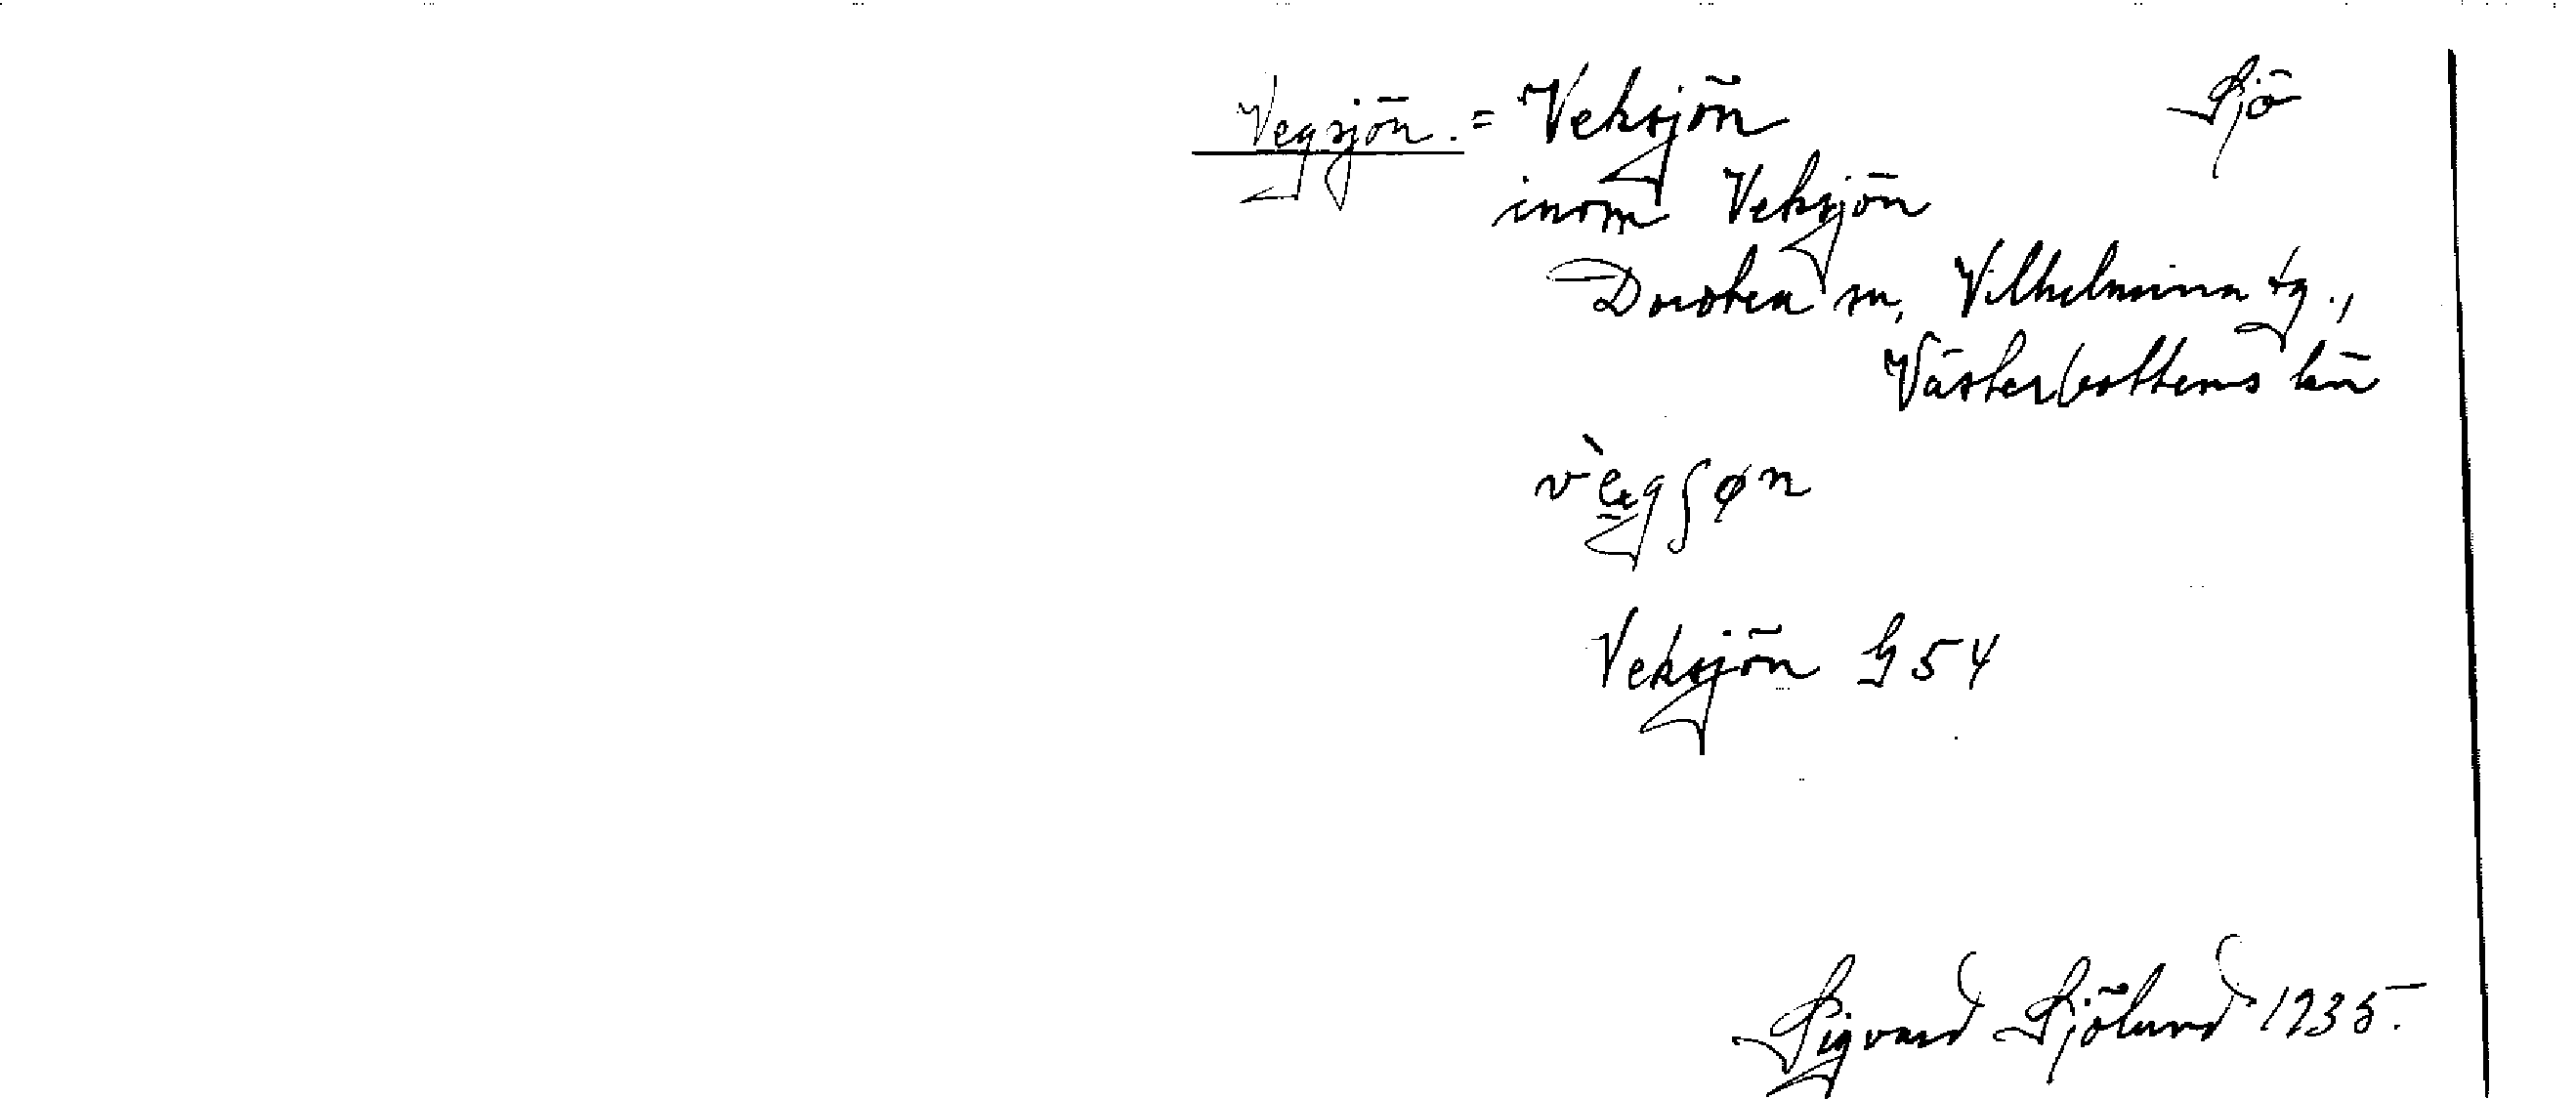 Vegsjön. = Veksjön Sjö
inom Veksjön
Dorotea sn, Vilhelmina tg.,
Västerbottens län
Veksjön G 54
Sigvard Sjölund 1935.